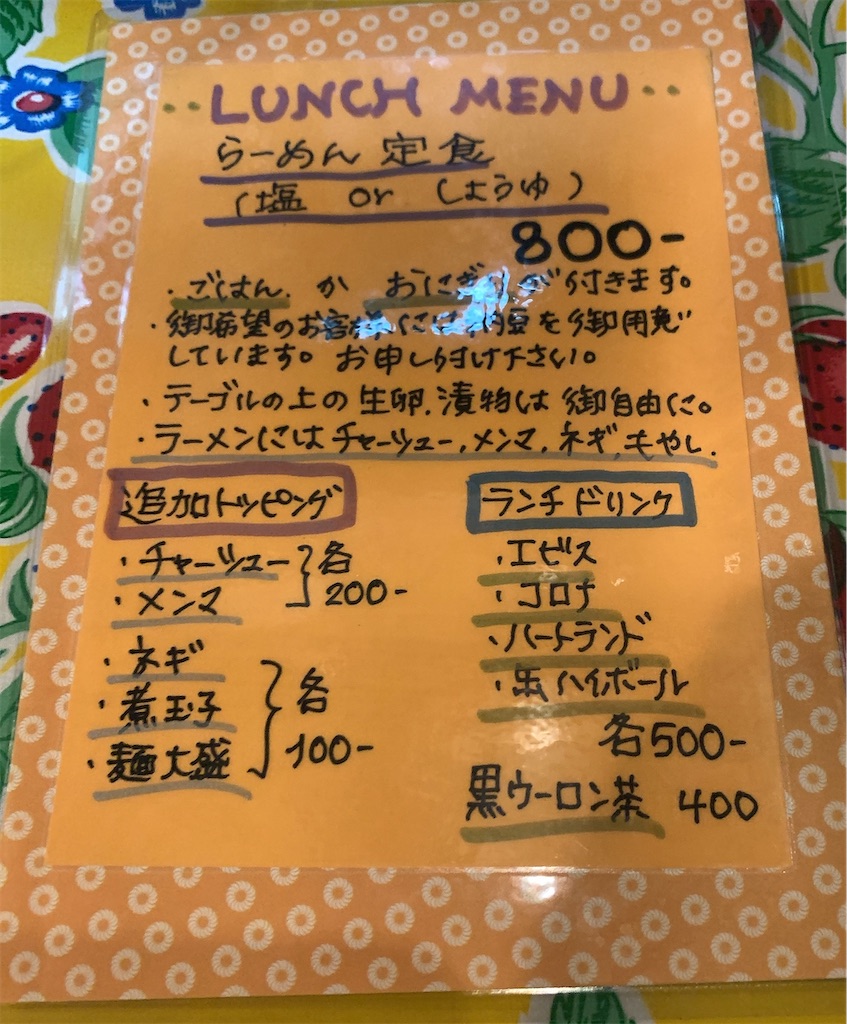 LUNCH MENU
らーめん 定食
(塩 or しょうゆ)
800-
・ごはん か おにぎりが付きます。
・御希望のお客様には納豆を御用意
しています。お申し付け下さい。
・テーブルの上の生卵、漬物は御自由に。
・ラーメンにはチャーシュー、メンマ、ネギ、もやし.
追加トッピング
・チャーシュー
・メンマ
各
200-
・ネギ
・煮玉子
・麺大盛
各
100-
ランチドリンク
・エビス
・コロナ
・ハートランド
・缶ハイボール
各500-
黒ウーロン茶 400